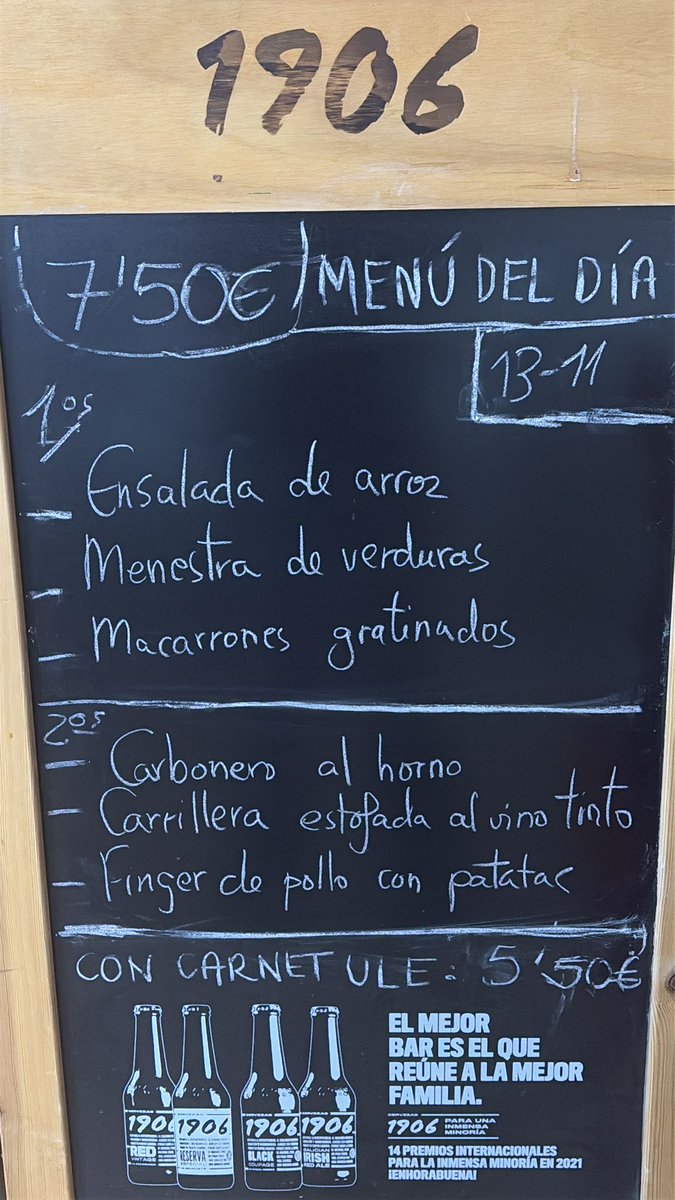 1906
7'50€ MENÚ DEL DÍA
13-11
1os
- Ensalada de arroz
- Menestra de verduras
- Macarrones gratinados
2os
- Carbonero al horno
- Carrillera estofada al vino tinto
- Finger de pollo con patatas
CON CARNET ULE: 5'50€
EL MEJOR
BAR ES EL QUE
REÚNE A LA MEJOR
FAMILIA.
CERVEZAS
1906 PARA UNA
INMENSA
MINORÍA
14 PREMIOS INTERNACIONALES
PARA LA INMENSA MINORÍA EN 2021
¡ENHORABUENA!
CERVEZAS
1906
RED
VINTAGE
CERVEZAS
1906
RESERVA
ESPECIAL
CERVEZAS
1906
BLACK
COUPAGE
CERVEZAS
1906
GALICIAN
IRISH
RED ALE